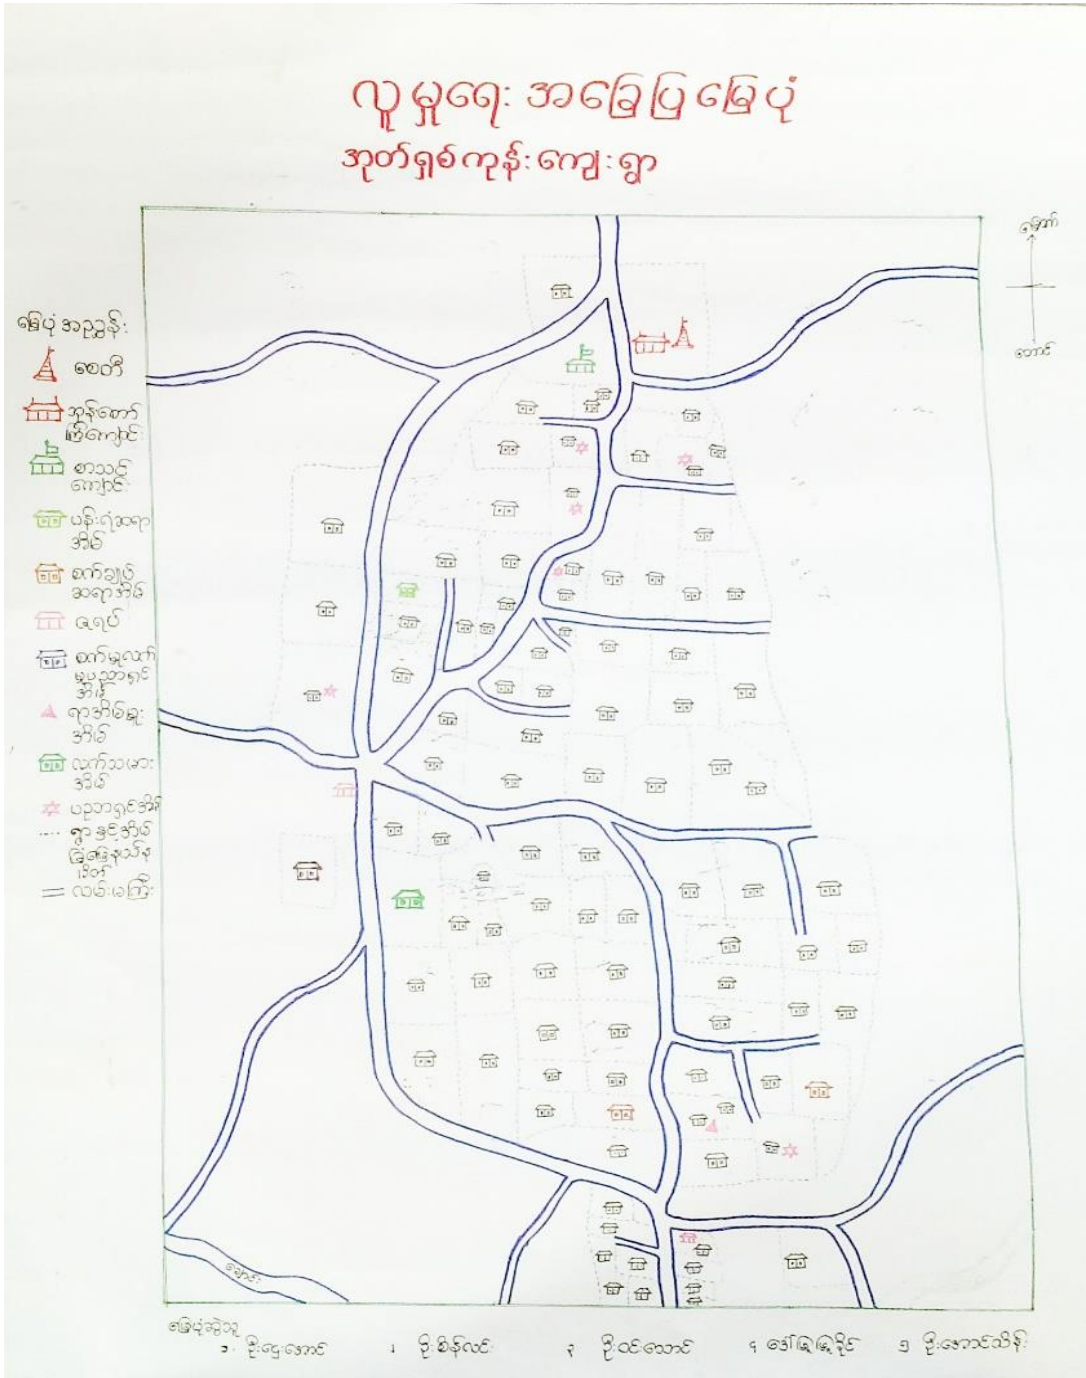 လူမှုရေး အခြေပြ မြေပုံ
အုတ်ရှစ်ကုန်းကျေးရွာ
မြောက်
တောင်
မြေပုံအညွှန်း
စေတီ
ဘုန်းတော်
ကြီးကျောင်း
စာသင်
ကျောင်း
ပန်းရံဆရာ
အိမ်
စက်ချုပ်
ဆရာအိမ်
ဇရပ်
စက်မှုလက်
မှုပညာရှင်
အိမ်
ရာအိမ်မှူး
အိမ်
လက်သမား
အိမ်
ရွာနှင့်အိမ်
လမ်းမကြီး
ချောင်း
မြေပုံဆွဲသူ
၁ ဦးဌေးအောင်
၂ ဦးစိန်လင်း
၃ ဦးဝင်းသောင်
၄ ဒေါ်ဖြူဖြူခိုင်
၅ ဦးအောင်သိန်း